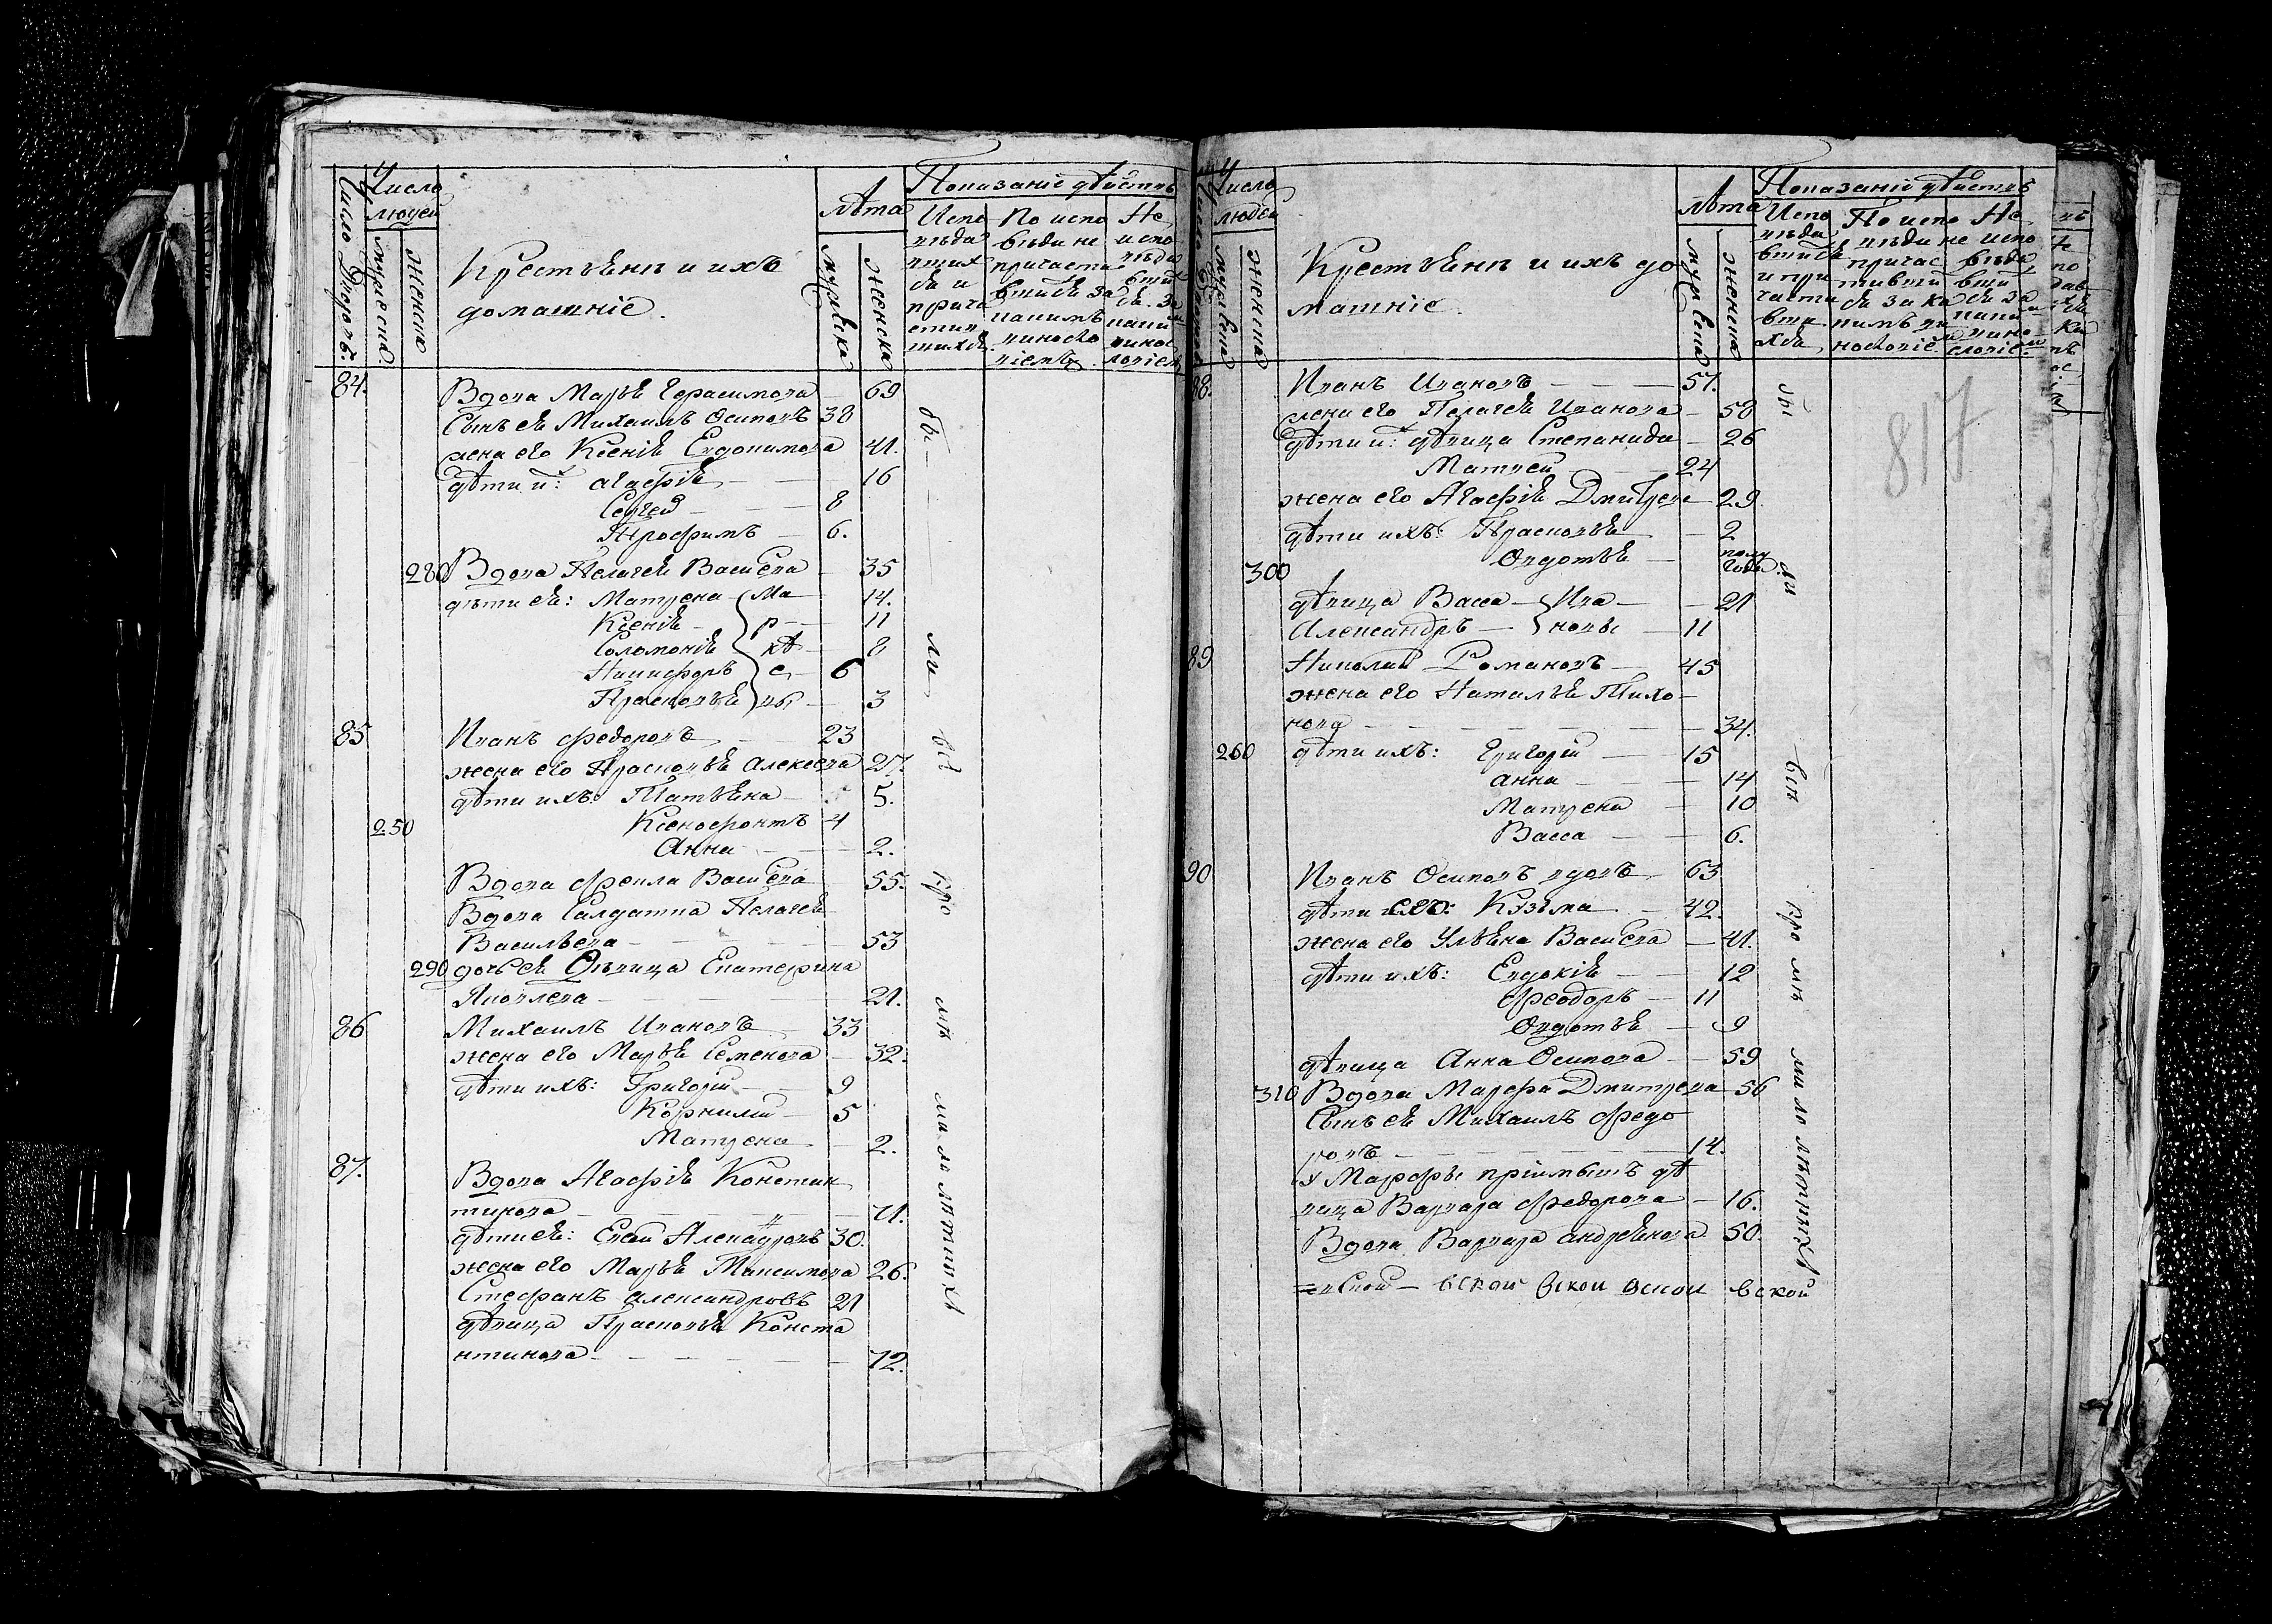 Число Дворовъ.
Число людей
мужеска
женска
Крестьяне и ихъ
домашніе.
Лѣта
мужеска
женска
Показаніе дѣйствъ
Испо
вѣда
вших
ся и
прича
стив
шихся
По испо
вѣди не
причасти
вшися за
какимъ
виносло
віемъ
Не
испо
вѣда
вши
ся за
каким
винос
ловіемъ
84. Вдова Марья Герасимова — 69
Сынъ ея Михаилъ Осиповъ 38
жена его Ксенія Евдокимова 41.
дѣти их: Агафія — 16
Сергей — 8
Трофимъ — 6.
280 Вдова Пелагея Васильева — 35
дѣти ея: Матрена — Ма — 14.
Ксенія — р — 11
Соломонія кѣ — 8
Никифоръ е — 6
Прасковья вы — 3
85 Иванъ Федоровъ — 23
жена его Прасковья Алексеева 27.
дѣти ихъ: Татьяна — 5.
250 Ксенофонтъ 4
Анна — 2.
Вдова Фекла Васильева 55.
Вдова Салдатка Пелагея
Васильева — 53
290 дочь ея Дѣвица Екатерина
Яковлева — 21.
86 Михаилъ Ивановъ 33
жена его Марья Семенова — 32.
дѣти ихъ: Григорій — 9
Корнилій — 5
Матрена — 2.
87. Вдова Агафія Констан
тинова — 71.
дѣти ея: Евсей Александровъ 30.
жена его Марья Максимова 26.
Стефанъ Александровъ 21
дѣвица Прасковья Конста
нтинова — 72.
бы — ли всѣ кро мѣ ма ло лѣтныхъ
Число
людей
мужеска
женска
Крестьяне и ихъ до
машніе.
Лѣта
мужеска
женска
Показаніе дѣйствъ
Испо
вѣда
вшися
и при
части
вши
хся
По испо
вѣди не
причас
тивши
ся за ка
кимъ ви
нословіе
Не
испо
вѣда
вши
ся за
каки
вино
словіем
817
88. Иванъ Ивановъ — 57.
жена его Пелагея Иванова — 58
дѣти их: дѣвица Степанида — 26
Матвей — 24
жена его Агафія Дмитрева — 29.
дѣти ихъ: Прасковья — 2
300 Овдотья — полу
года.
дѣвица Васса — Ива — 21
Александръ — новы — 11
89 Николай Романовъ — 45
жена его Наталья Тихо —
нова — 34.
260 дѣти ихъ: Григорій — 15
Анна — 14
Матрена — 10
Васса — 6.
90 Иванъ Осиповъ вдовъ 63
дѣти его: Кузьма — 42.
жена его Ульяна Васильева — 41.
дѣти ихъ: Евдокія — 12
Феодоръ — 11
Овдотья — 9
дѣвица Анна Осипова — 59
310 Вдова Марфа Дмитрева 56
Сынъ ея Михаилъ Федо
ровъ — 14.
у Марфы пріимышъ дѣ
вица Варвара Федорова — 16.
Вдова Варвара Андреянова 50.
вской — вской вской вской вской
бы ли всѣ кро мѣ ма ло лѣтныхъ